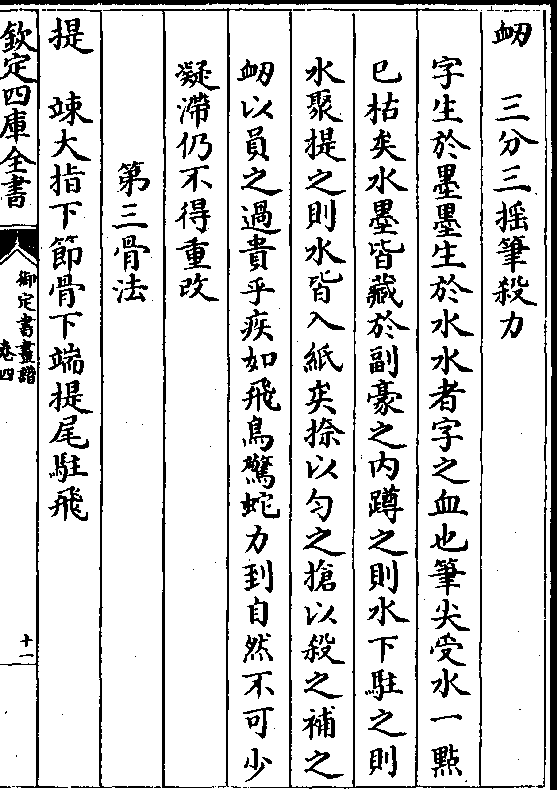 衂　三分三搖筆殺力
字生於墨墨生於水水者字之血也筆尖受水一點
已枯矣水墨皆藏於副豪之内蹲之則水下駐之則
水聚提之則水皆入紙矣捺以勻之搶以殺之補之
衂以員之過貴乎疾如飛鳥驚蛇力到自然不可少
凝滯仍不得重改
第三骨法
提　竦大指下節骨下端提尾駐飛
欽定四庫全書
御定書畫譜
卷四
十一